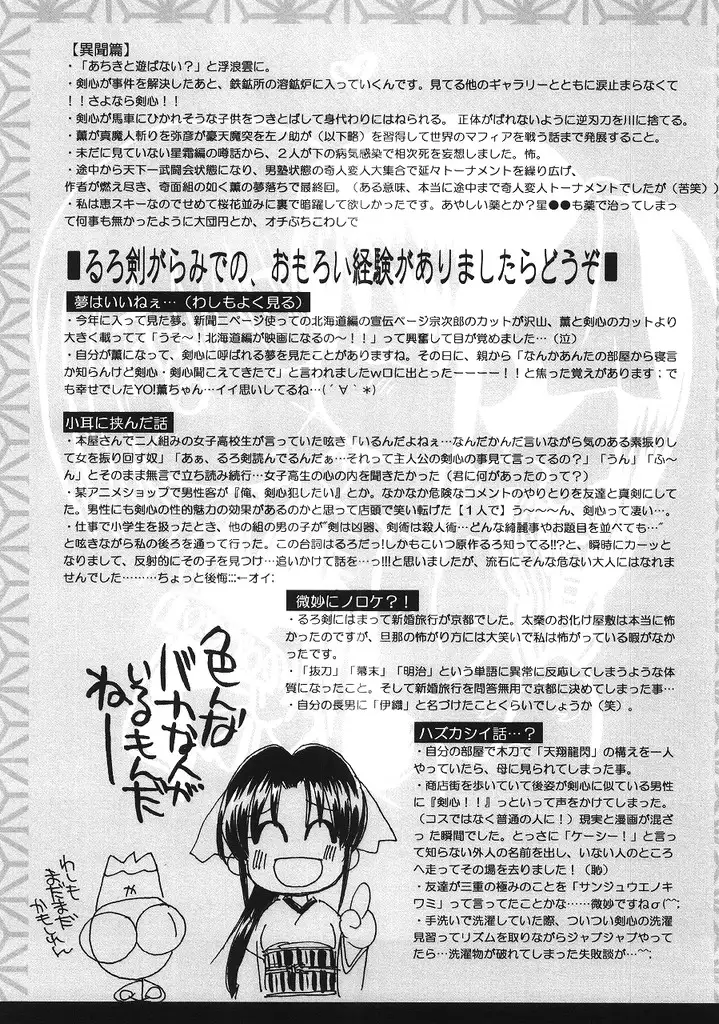 【異聞篇】
・「あちきと遊ばない？」と浮浪雲に。
・剣心が事件を解決したあと、鉄鉱所の溶鉱炉に入っていくんです。見てる他のギャラリーとともに涙止まらなくて
！！さよなら剣心！！
・剣心が馬車にひかれそうな子供をつきとばして身代わりにはねられる。 正体がばれないように逆刃刀を川に捨てる。
・薫が真魔人斬りを弥彦が豪天魔突を左ノ助が（以下略）を習得して世界のマフィアを戦う話まで発展すること。
・未だに見ていない星霜編の噂話から、２人が下の病気感染で相次死を妄想しました。怖。
・途中から天下一武闘会状態になり、男塾状態の奇人変人大集合で延々トーナメントを繰り広げ、
作者が燃え尽き、奇面組の如く薫の夢落ちで最終回。（ある意味、本当に途中まで奇人変人トーナメントでしたが（苦笑））
・私は恵スキーなのでせめて桜花並みに裏で暗躍して欲しかったです。あやしい薬とか？星●●も薬で治ってしまっ
て何事も無かったように大団円とか、オチぶちこわしで
■るろ剣がらみでの、おもろい経験がありましたらどうぞ■
夢はいいねぇ…（わしもよく見る）
・今年に入って見た夢。新聞二ページ使っての北海道編の宣伝ページ宗次郎のカットが沢山、薫と剣心のカットより
大きく載ってて「うそ～！北海道編が映画になるの～！！」って興奮して目が覚めました…（泣）
・自分が薫になって、剣心に呼ばれる夢を見たことがありますね。その日に、親から「なんかあんたの部屋から寝言
か知らんけど剣心・剣心聞こえてきたで」と言われましたｗ口に出とったーーーー！！と焦った覚えがあります；で
も幸せでしたYO!薫ちゃん…イイ思いしてるね…(´∀｀*)
小耳に挟んだ話
・本屋さんで二人組みの女子高校生が言っていた呟き「いるんだよねぇ…なんだかんだ言いながら気のある素振りし
て女を振り回す奴」「あぁ、るろ剣読んでるんだぁ…それって主人公の剣心の事見て言ってるの？」「うん」「ふ～
ん」とそのまま無言で立ち読み続行…女子高生の心の内を聞きたかった（君に何があったのって？）
・某アニメショップで男性客が『俺、剣心犯したい』とか。なかなか危険なコメントのやりとりを友達と真剣にして
た。男性にも剣心の性的魅力の効果があるのかと思って店頭で笑い転げた【１人で】う～～～ん、剣心って凄い…。
・仕事で小学生を扱ったとき、他の組の男の子が"剣は凶器、剣術は殺人術…どんな綺麗事やお題目を並べても…"
と呟きながら私の後ろを通って行った。この台詞はるろだっ!しかもこいつ原作るろ知ってる!!?と、瞬時にカーッと
なりまして、反射的にその子を見つけ…追いかけて話を…っ!!!と思いましたが、流石にそんな危ない大人にはなれま
せんでした………ちょっと後悔;;;←オイ;
微妙にノロケ？！
・るろ剣にはまって新婚旅行が京都でした。太秦のお化け屋敷は本当に怖
かったのですが、旦那の怖がり方には大笑いで私は怖がっている暇がなか
ったです。
・「抜刀」「幕末」「明治」という単語に異常に反応してしまうような体
質になったこと。そして新婚旅行を問答無用で京都に決めてしまった事…
・自分の長男に「伊織」と名づけたことくらいでしょうか（笑）。
ハズカシイ話…？
・自分の部屋で木刀で「天翔龍閃」の構えを一人
やっていたら、母に見られてしまった事。
・商店街を歩いていて後姿が剣心に似ている男性
に『剣心！！』っといって声をかけてしまった。
（コスではなく普通の人に！）現実と漫画が混ざ
っ た瞬間でした。とっさに「ケーシー！」と言っ
て知らない外人の名前を出し、いない人のところ
へ走ってその場を去りました！（恥）
・友達が三重の極みのことを「サンジュウエノキ
ワミ」って言ってたことかな……微妙ですねσ(^^;
・手洗いで洗濯していた際、ついつい剣心の洗濯
見習ってリズムを取りながらジャブジャブやって
たら…洗濯物が破れてしまった失敗談が…^^;
色んな
バカな人が
いるもんだ
ねー
わしも
まだまだ
かもしれん